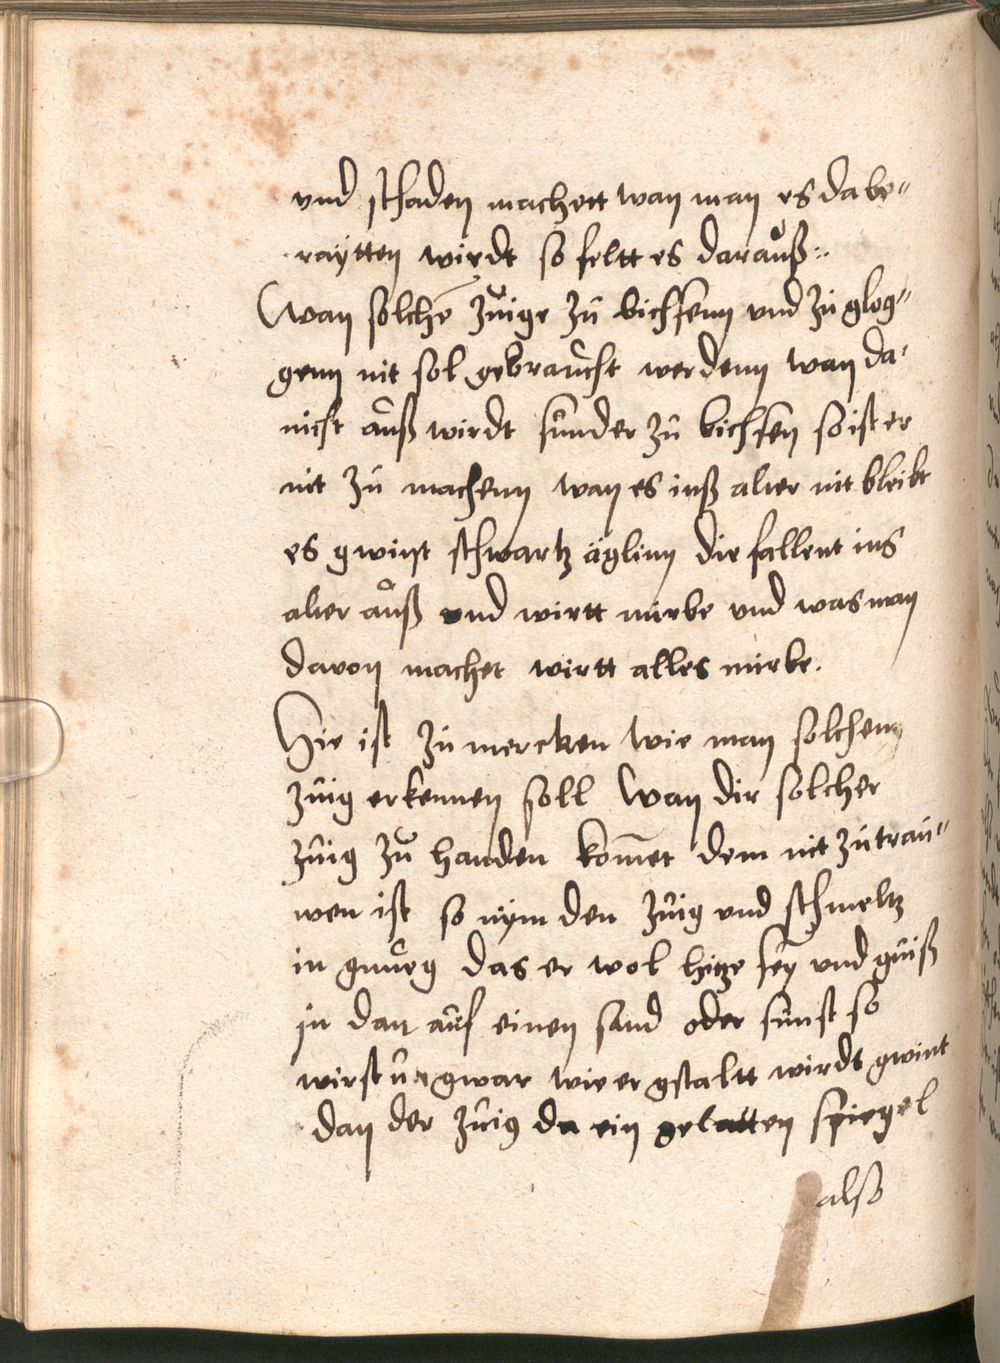 vnd schaden machett wan man es da be=
raÿtten wirdt so feltt es darauß :
Wan solche zuige zu bichsenn vnd zu glog=
genn nit sol gebraucht werdenn wan da
nicht auß wirdt sunder zu bichsen so ist er
nit zu machenn wan es inß alter nit bleibt
es gwint schwartz äglinn die fallent ins
alter auß vnd wirtt mirbe vnd was man
davon machet wirtt alles mirbe.
Hie ist zu mercken wie man solchenn
zuig erkennen soll Wan dir solcher
zuig zu handen komet dem nit zu trau=
wen ist so nÿm den zuig vnd schmeltz
in gnueg das er wol hitze seÿ vnd guiß
in dan auf einen sand oder sunst so
wirstu gwar wie er gstaltt wirdt gwint
dan der zuig da ein gelatten spiegel
also